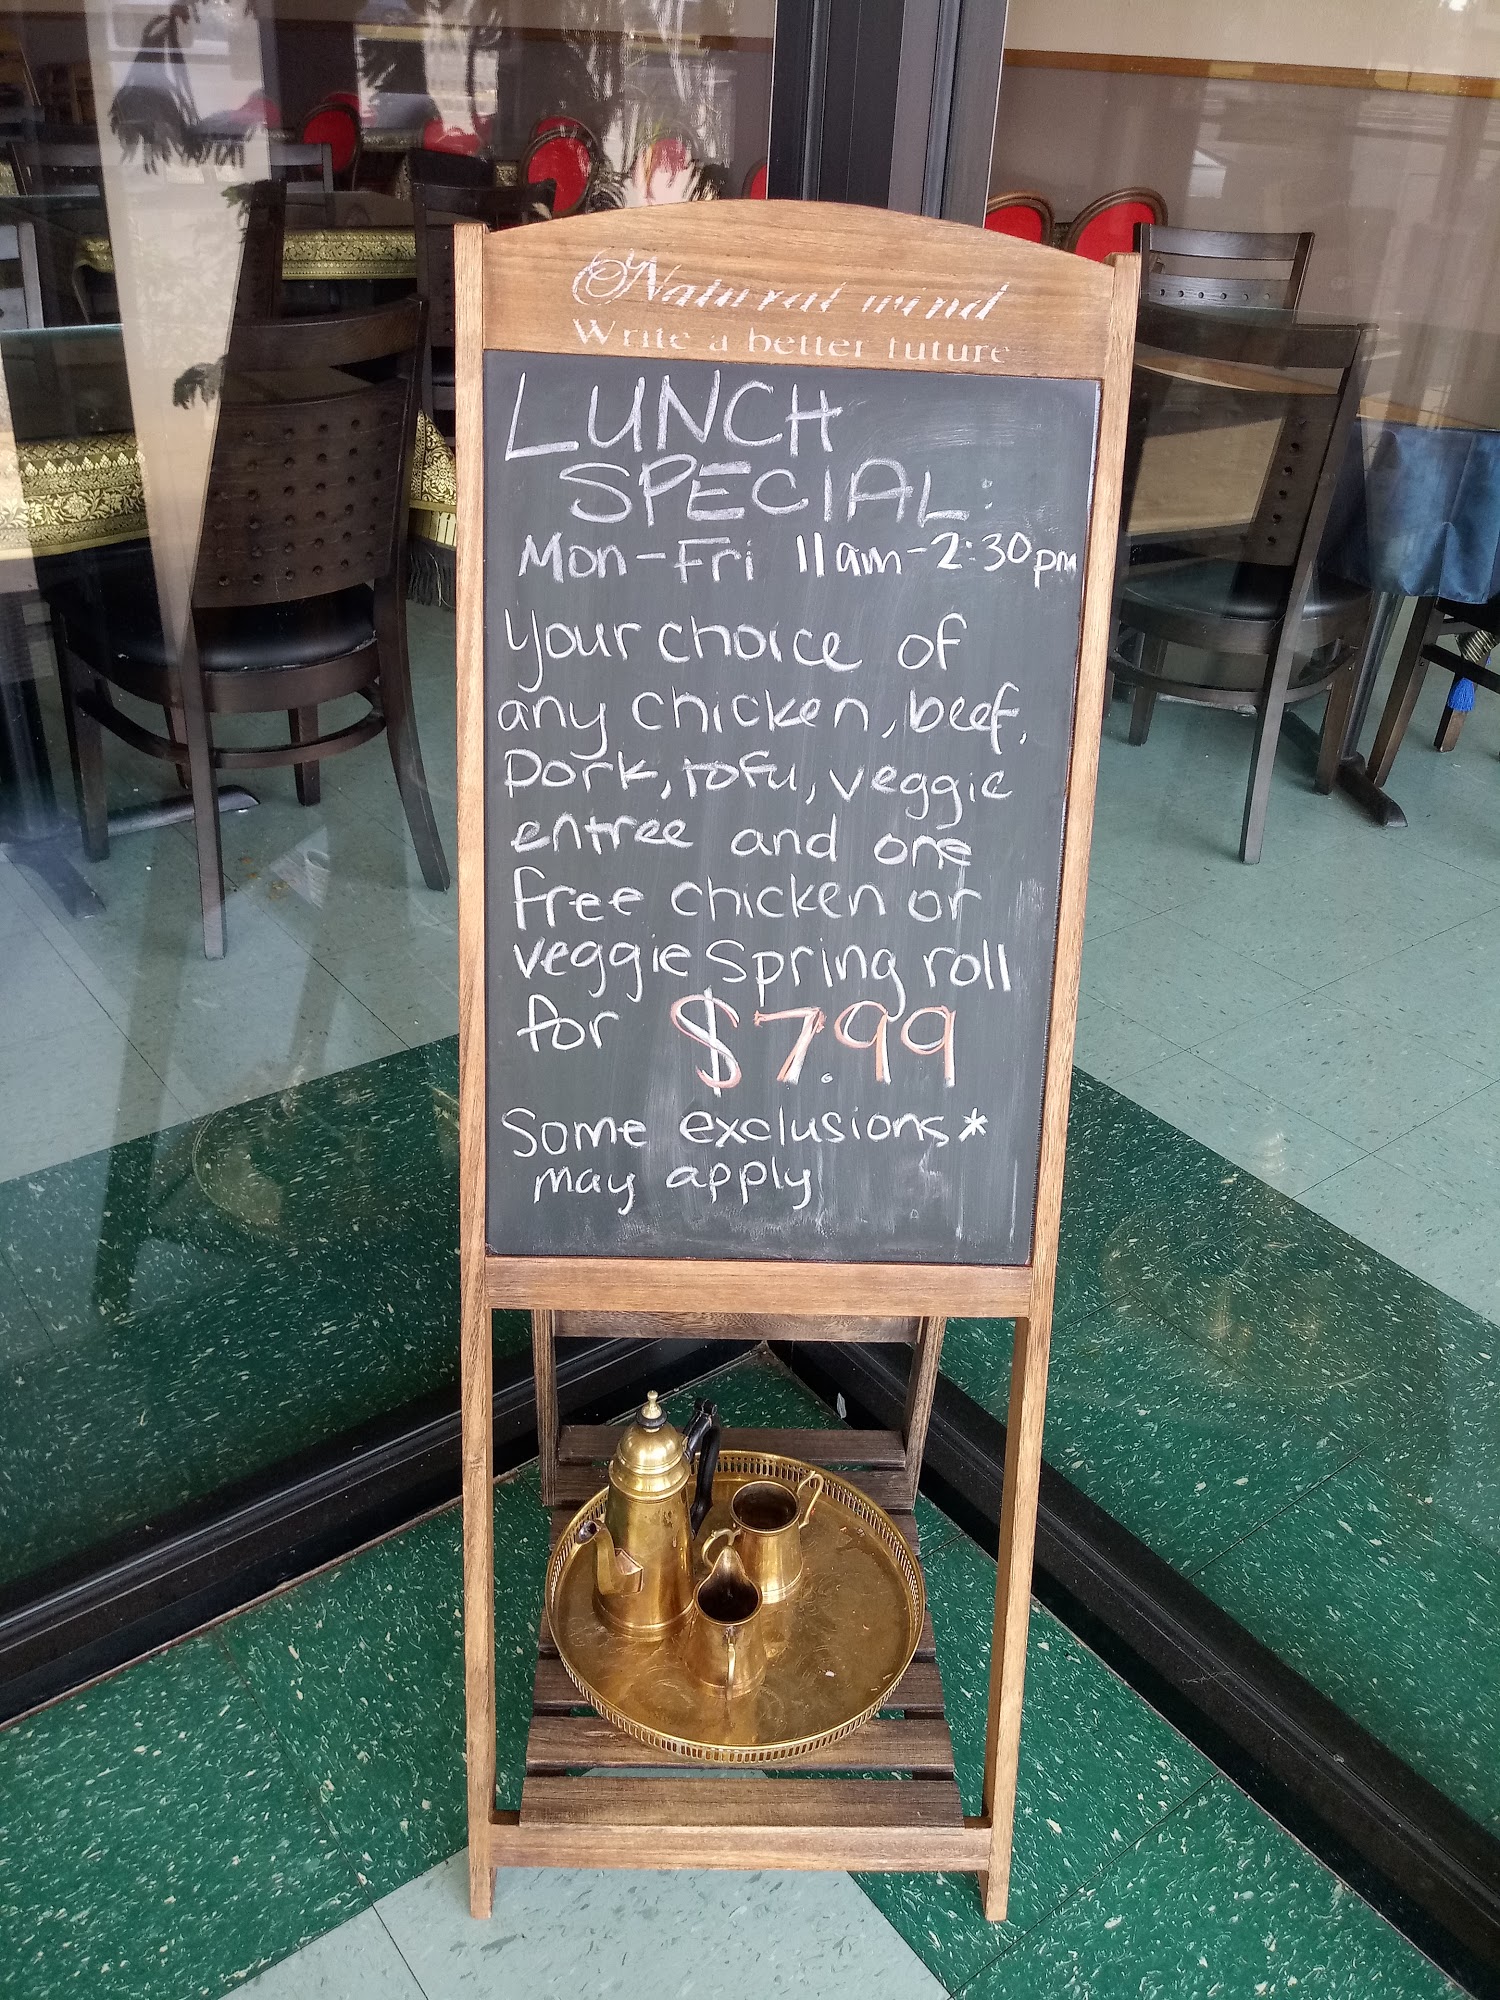 Natural wind
Write a better future
LUNCH
SPECIAL:
Mon-Fri 11am-2:30pm
Your choice of
any chicken, beef,
Pork, tofu, veggie
entree and one
free chicken or
veggie Spring roll
for $7.99
Some exclusions*
may apply